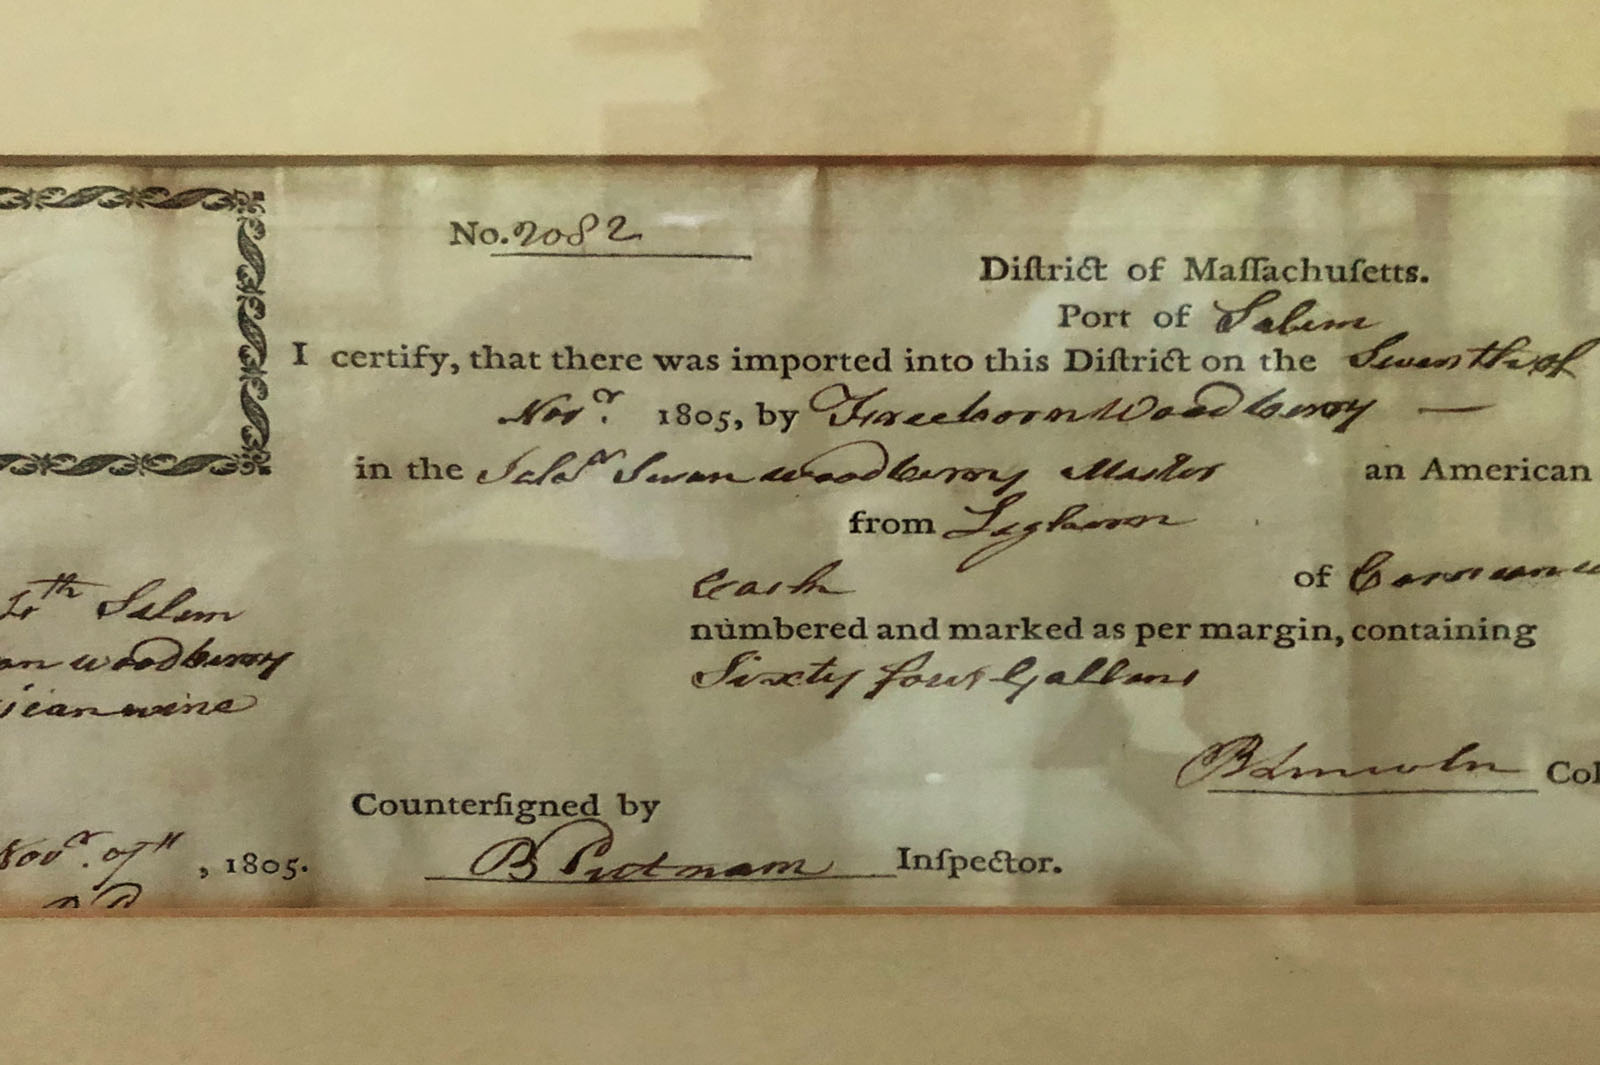 No. 2082
Diſtrict of Maſſachuſetts.
Port of Salem
I certify, that there was imported into this Diſtrict on the Seventh of
Novr. 1805, by Freeborn Woodberry —
in the Schr Swan Woodberry Master an American
from Leghorn
Cask of
numbered and marked as per margin, containing
Sixty four Gallons
B Lincoln Col
Counterſigned by
B Putnam Inſpector.
th Salem
an Woodberry
wine
Novr. 7th, 1805.